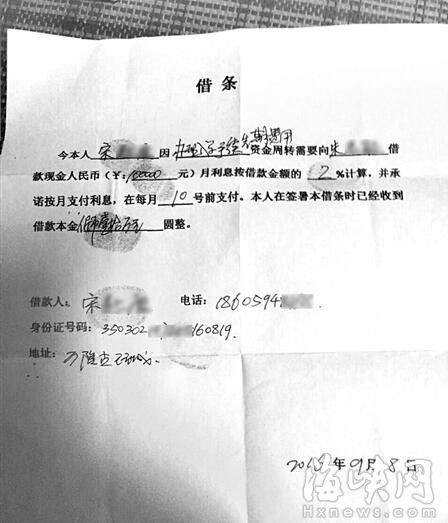 借条
今本人 宋 因 办理入学手续先期费用 资金周转需要向 朱 借
款现金人民币（￥: 100000 元）月利息按借款金额的 2 %计算，并承
诺按月支付利息，在每月 10 号前支付。本人在签署本借条时已经收到
借款本金 圆整。
借款人： 宋 电话： 18605948
身份证号码： 350302 160819.
地址：
年 09月 8日
海峡网
Hxnews.com